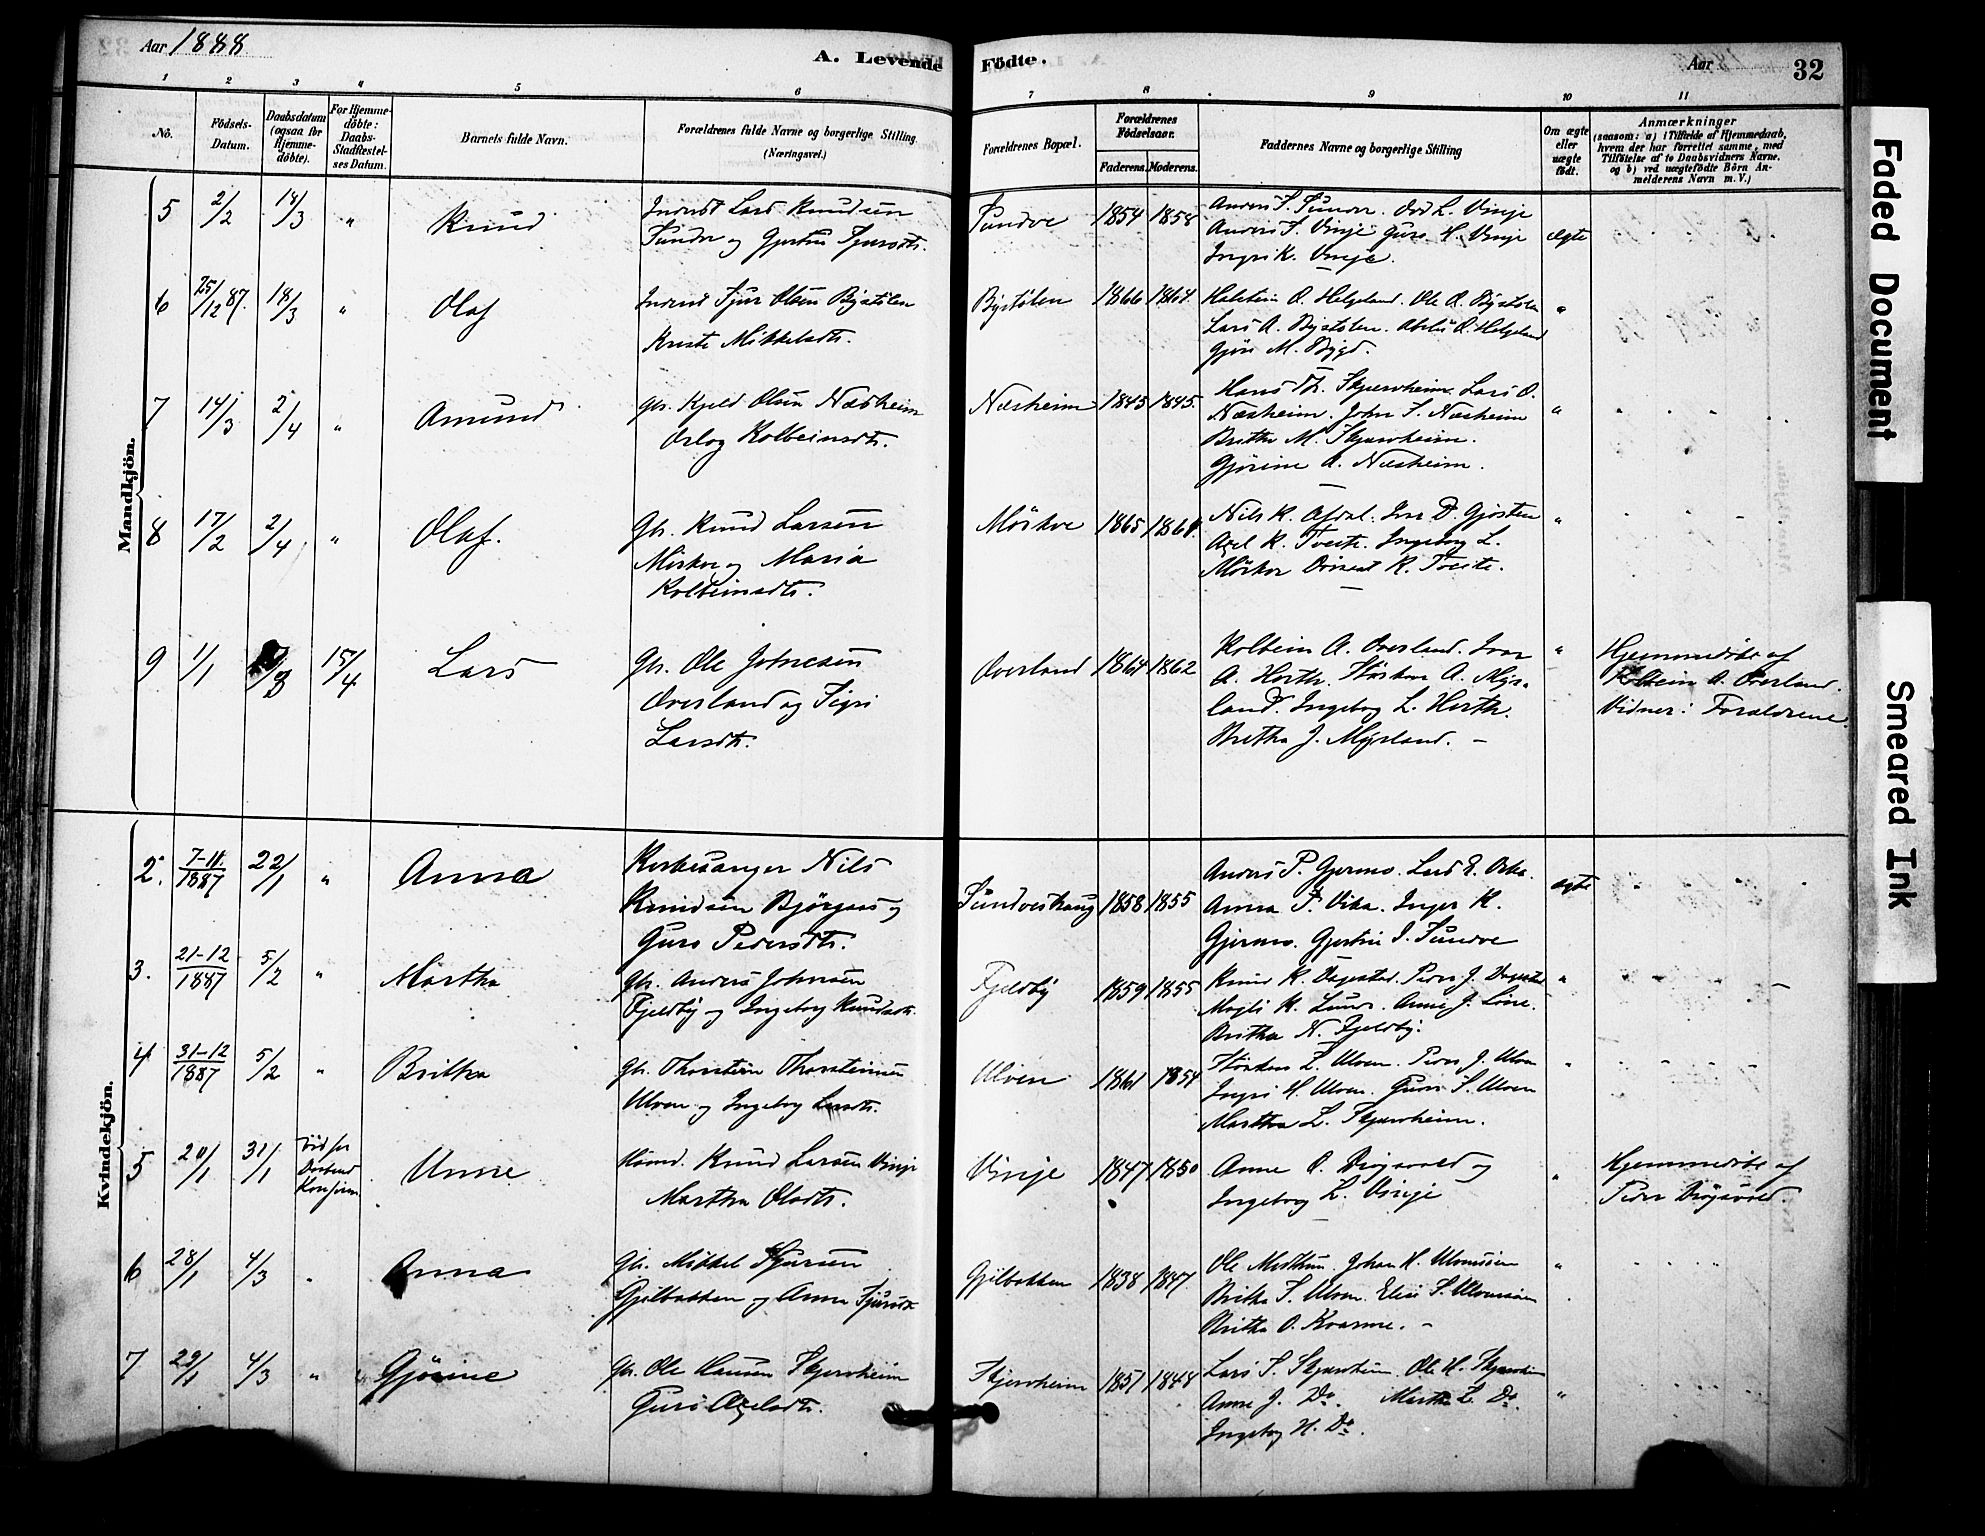 Aar 1888
A. Levende Födte.
Aar
32
1 2 3 4 5 6 7 8 9 10 11
No.
Födsels-Datum.
Daabsdatum (ogsaa for Hjemme-döbte).
For Hjemme-döbte: Daabs-Stadfæstel-ses Datum.
Barnets fulde Navn.
Forældrenes fulde Navne og borgerlige Stilling
(Næringsvei.)
Forældrenes Bopæl.
Forældrenes Födselsaar.
Faderens. Moderens.
Faddernes Navne og borgerlige Stilling
Om ægte eller uægte födt.
Anmærkninger
(saasom: a) i Tilfælde af Hjemmedaab,
hvem der har forrettet samme, med
Tilföielse af to Daabsvidners Navne.
og b) ved uægtefödte Börn An-
melderens Navn m. V.)
Mandkjön.
5 2/2 18/3 " Knud
Inderst Lars Knudsen
Sundve og Gjertrud Sjursdtr.
Sundve 1854 1858
Anders S. Sundve. Odd L. Vinje
Anders S. Vinje Guro H. Vinje
Ingri K. Vinje.
ægte
6 25/12 87. 18/3 " Olaf
Inderst Sjur Olsen Bystölen
Kristi Mikkelsdtr.
Bystölen 1866 1864.
Halstein O. Helgeland. Ole O. Bystölen
Lars A. Bystölen. O. Helgeland
Gjöri M. Bygd.
"
7 14/3 2/4 " Amund
Gbr. Kjeld Olsen Næsheim
Oslog Kolbeinsdtr.
Næsheim 1843 1845.
Hans Th. Skjerveheim. Lars O.
Næsheim. John S. Næsheim
Britha M. Skjerveheim.
Gjörine A. Næsheim.
"
8 17/2 2/4 " Olaf.
Gbr. Knud Larsen
Mörkve og Maria
Kolbeinsdtr.
Mörkve 1865 1864.
Nils K. Afdal. Ivar D. Gjösten
Axel K. Tveite. Ingeborg L.
Mörkve K. Tveite.
"
9 1/1 /3 15/4 Lars
Gbr. Ole Johnesen
Overland og Sigri
Larsdtr.
Overland 1864 1862
Kolbein A. Overland. Ivar
A. Herth. Störkor A. Myr-
land. Ingebog L. Herth.
Britha J. Myrland. -
"
Hjemmedöbt af
Kolbein A. Overland.
Vidner: Forældrene
Kvindekjön.
2. 7-11./1887 22/1 " Anna
Kirkesanger Nils
Knudsen Björgaas og
Guro Pedersdtr.
Sundveshaug 1858 1855
Anders P. Gjermo. Lars E.
Anna P. Vika. Inger K.
Gjermo. Gjertrud I. Sundve
ægte
3. 21-12/1887 5/2 " Martha
Gbr. Anders Johnsen
Fjeldby og Ingeborg Knudsdtr.
Fjeldby 1859 1855
Knud K. Dagestad. Peder J. Dagestad
Magli K. Lunde. Anna J. Löne.
Britha N. Fjeldby.
"
4 31-12/1887 5/2 " Britha
Gbr. Thorstein Thorsteinsen
Ulven og Ingebog Larsdtr.
Ulven 1861 1854
Störkor L. Ulven. Peder J. Ulven
Ingri H. Ulven. Guro S. Ulven
Martha L. Skjerveheim.
"
5 20/1 31/1 Död för
Unne
Huusmd. Knud Larsen Vinje
Martha Olsdtr.
Vinje 1847 1850
Anne O. Drögsvold og
Ingeborg L. Vinje
"
Hjemmedöbt af
Peder Drögsvold.
6 28/1 4/3 " Anna
Gbr. Mikkel Sjursen
Gjelbakken og Anna Sjursdtr.
Gjelbakken 1838 1847.
Ole Mesthun. Johan H. Ulvensöen
Britha S. Ulven. Elisi S. Ulvensöen
Britha O. Kvarme. -
"
7 29/1 4/3 " Gjörine
Gbr. Ole Hansen Skjerveheim
Guri Axelsdtr.
Skjerveheim 1857 1848
Lars S. Skjerveheim. Ole H. Skjerveheim
Anna J. Do. Martha L. Do.
Ingebog H. Do.
"
Faded Document
Smeared Ink